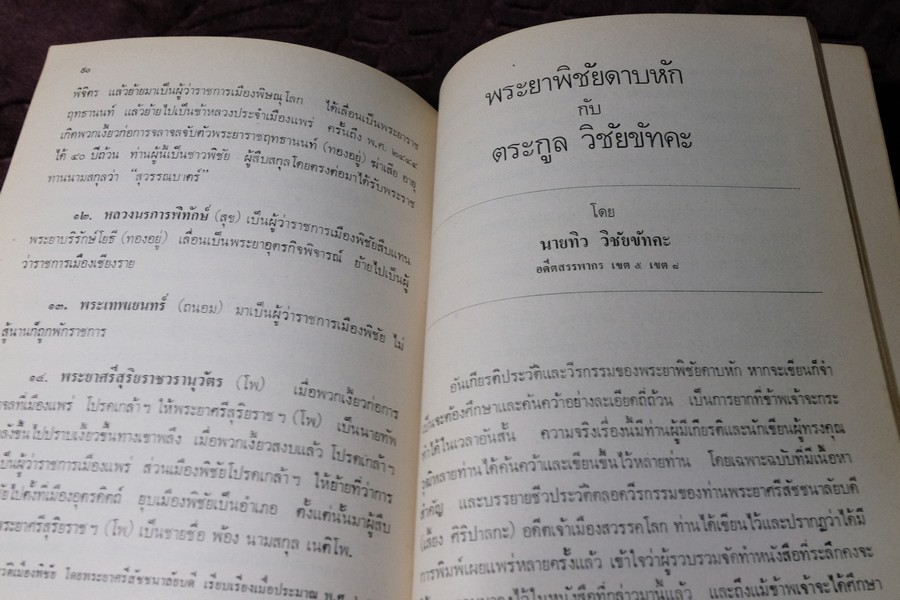 ๕๐
พิจิตร แล้วย้ายมาเป็นผู้ว่าราชการเมืองพิษณุโลก ได้เลื่อนเป็นพระยาราช
ฤทธานนท์ แล้วย้ายไปเป็นข้าหลวงประจำเมืองแพร่ ครั้นถึง พ.ศ. ๒๔๔๕
เกิดพวกเงี้ยวก่อการจลาจลจับตัวพระยาราชฤทธานนท์ (ทองอยู่) ฆ่าเสีย อายุ
ได้ ๔๐ ปีถ้วน ท่านผู้นี้เป็นชาวพิชัย ผู้สืบสกุลโดยตรงต่อมาได้รับพระราช
ทานนามสกุลว่า “สุวรรณบาตร์”
๑๒. หลวงนรการพิทักษ์ (สุข) เป็นผู้ว่าราชการเมืองพิชัยสืบแทน
พระยาบริรักษ์โยธี (ทองอยู่) เลื่อนเป็นพระยาอุตรกิจพิจารณ์ ย้ายไปเป็นผู้
ว่าราชการเมืองเชียงราย
๑๓. พระเทพเยนทร์ (ถนอม) มาเป็นผู้ว่าราชการเมืองพิชัย ไม่
สู้นานก็ถูกพักราชการ
๑๔. พระยาศรีสุริยราชวรานุวัตร (โพ) เมื่อพวกเงี้ยวก่อการ
จลที่เมืองแพร่ โปรดเกล้าฯ ให้พระยาศรีสุริยราชฯ (โพ) เป็นนายทัพ
ลังขึ้นไปปราบเงี้ยวขึ้นทางเขาพลึง เมื่อพวกเงี้ยวสงบแล้ว โปรดเกล้าฯ
เป็นผู้ว่าราชการเมืองแพร่ ส่วนเมืองพิชัยโปรดเกล้าฯ ให้ย้ายที่ว่าการ
ยไปตั้งที่เมืองอุตรดิตถ์ ยุบเมืองพิชัยเป็นอำเภอ ตั้งแต่นั้นมาผู้สืบ
พระยาศรีสุริยราชฯ (โพ) เป็นชายชื่อ พ้อง นามสกุล เนติโพ.
วัติเมืองพิชัย โดยพระยาศรีสัชนาลัยบดี เรียบเรียงเมื่อประมาณ
พระยาพิชัยดาบหัก
กับ
ตระกูล วิชัยขัทคะ
โดย
นายทิว วิชัยขัทคะ
อดีตสรรพากร เขต ๕ เขต ๘
อันเกียรติประวัติและวีรกรรมของพระยาพิชัยดาบหัก หากจะเขียนก็จำ
เป็นจะต้องศึกษาและค้นคว้าอย่างละเอียดถี่ถ้วน เป็นการยากที่ข้าพเจ้าจะกระ
ทำได้ในเวลาอันสั้น ความจริงเรื่องนี้มีท่านผู้มีเกียรติและนักเขียนผู้ทรงคุณ
วุฒิหลายท่านได้ค้นคว้าและเขียนขึ้นไว้หลายท่าน โดยเฉพาะฉบับที่มีเนื้อหา
สำคัญ และบรรยายชีวประวัติตลอดวีรกรรมของท่านพระยาศรีสัชชนาลัยบดี
(เลี้ยง ศิริปาลกะ) อดีตเจ้าเมืองสวรรคโลก ท่านได้เขียนไว้และปรากฏว่าได้มี
การพิมพ์เผยแพร่หลายครั้งแล้ว เข้าใจว่าผู้รวบรวมจัดทำหนังสือที่ระลึกคงจะ
ลงไว้ในหนังสือที่กล่าวมานี้แล้ว และถึงแม้ข้าพเจ้าจะได้ศึกษา